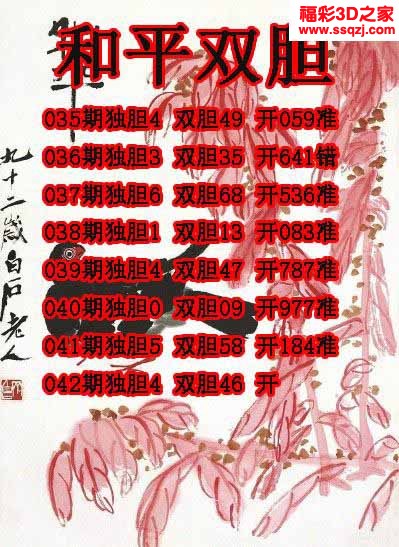 福彩3D之家
www.ssqzj.com
和平双胆
035期独胆4 双胆49 开059准
036期独胆3 双胆35 开641错
037期独胆6 双胆68 开536准
038期独胆1 双胆13 开083准
039期独胆4 双胆47 开787准
040期独胆0 双胆09 开977准
041期独胆5 双胆58 开184准
042期独胆4 双胆46 开
九十二岁白石老人